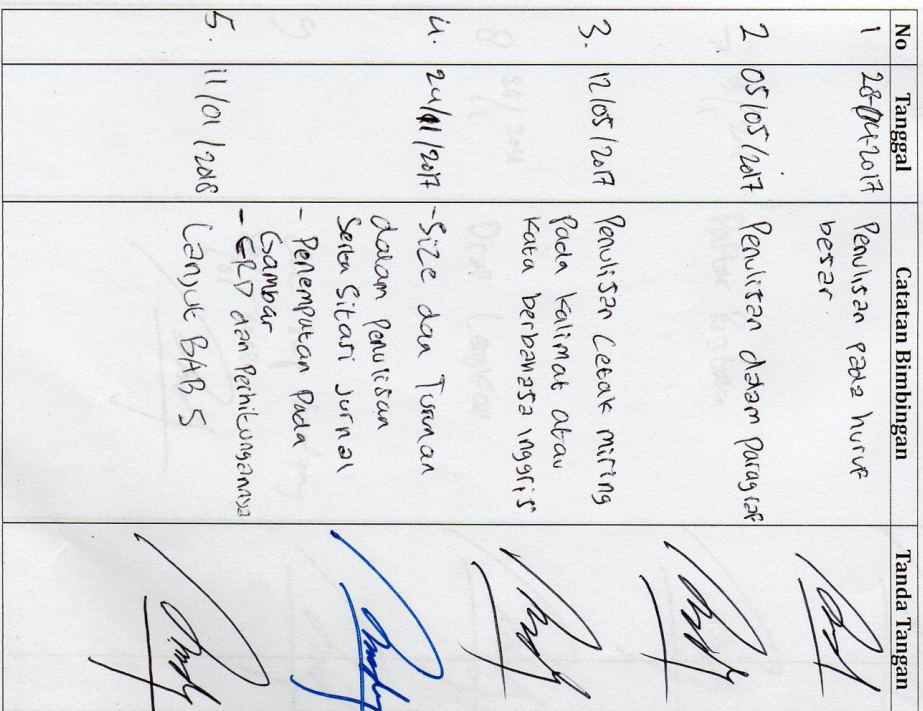 No Tanggal Catatan Bimbingan Tanda Tangan
1 28-04-2017 Penulisan pada huruf
besar
2 05/05/2017 Penulisan dalam Paragraf
3. 12/05/2017 Penulisan Cetak miring
Pada Kalimat atau
Kata berbahasa inggris
4. 24/01/2017 -Size dan Turunan
dalam Penulisan
Serta Sitasi Jurnal
- Penempatan Pada
Gambar
- ERD dan Perhitungannya
5. 11/01/2018 Lanjut BAB 5